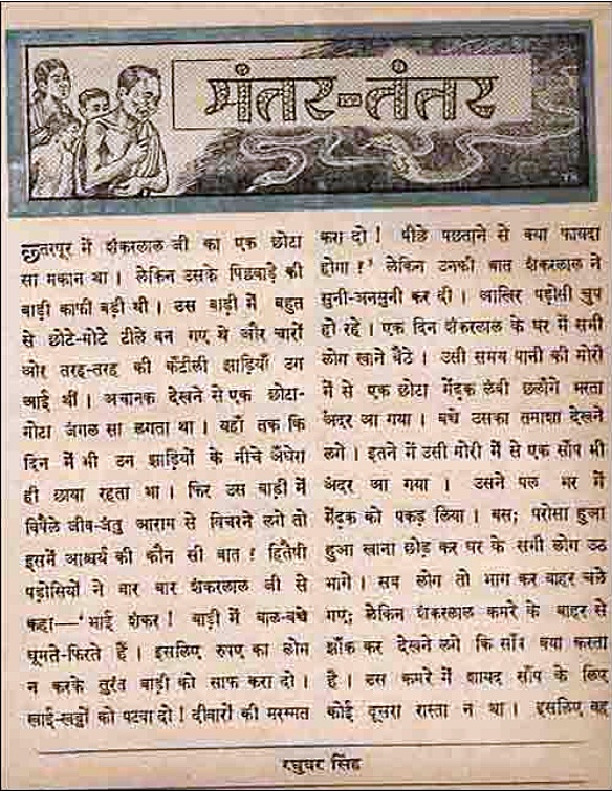 मंतर-तंतर
छतरपूर में शंकरलाल जी का एक छोटा
सा मकान था। लेकिन उसके पिछवाड़े की
बाड़ी काफी बड़ी थी। उस बाड़ी में बहुत
से छोटे-मोटे टीले बन गए थे और चारों
ओर तरह-तरह की कँटीली झाड़ियाँ उग
आई थीं। अचानक देखने से एक छोटा-
मोटा जंगल सा लगता था। यहाँ तक कि
दिन में भी उन झाड़ियों के नीचे अँधेरा
ही छाया रहता था। फिर उस बाड़ी में
विषैले जीव-जंतु आराम से विचरने लगे तो
इसमें आश्चर्य की कौन सी बात? हितैषी
पड़ोसियों ने बार बार शंकरलाल जी से
कहा—'भाई शंकर! बाड़ी में बाल-बच्चे
घूमते-फिरते हैं। इसलिए रुपए का लोभ
न करके तुरंत बाड़ी को साफ करा दो।
खाई-खड्डों को पटवा दो! दीवारों की मरम्मत
करा दो! पीछे पछताने से क्या फायदा
होगा?' लेकिन उनकी बात शंकरलाल ने
सुनी-अनसुनी कर दी। आखिर पड़ोसी चुप
हो रहे। एक दिन शंकरलाल के घर में सभी
लोग खाने बैठे। उसी समय पानी की मोरी
में से एक छोटा मेंढ़क लंबी छलाँगें भरता
अंदर आ गया। बच्चे उसका तमाशा देखने
लगे। इतने में उसी मोरी में से एक साँप भी
अंदर आ गया। उसने पल भर में
मेंढ़क को पकड़ लिया। बस; परोसा हुआ
हुआ खाना छोड़ कर घर के सभी लोग उठ
भागे। सब लोग तो भाग कर बाहर चले
गए; लेकिन शंकरलाल कमरे के बाहर से
झाँक कर देखने लगे कि साँप क्या करता
है। उस कमरे में शायद साँप के लिए
कोई दूसरा रास्ता न था। इसलिए वह
रघुवर सिंह